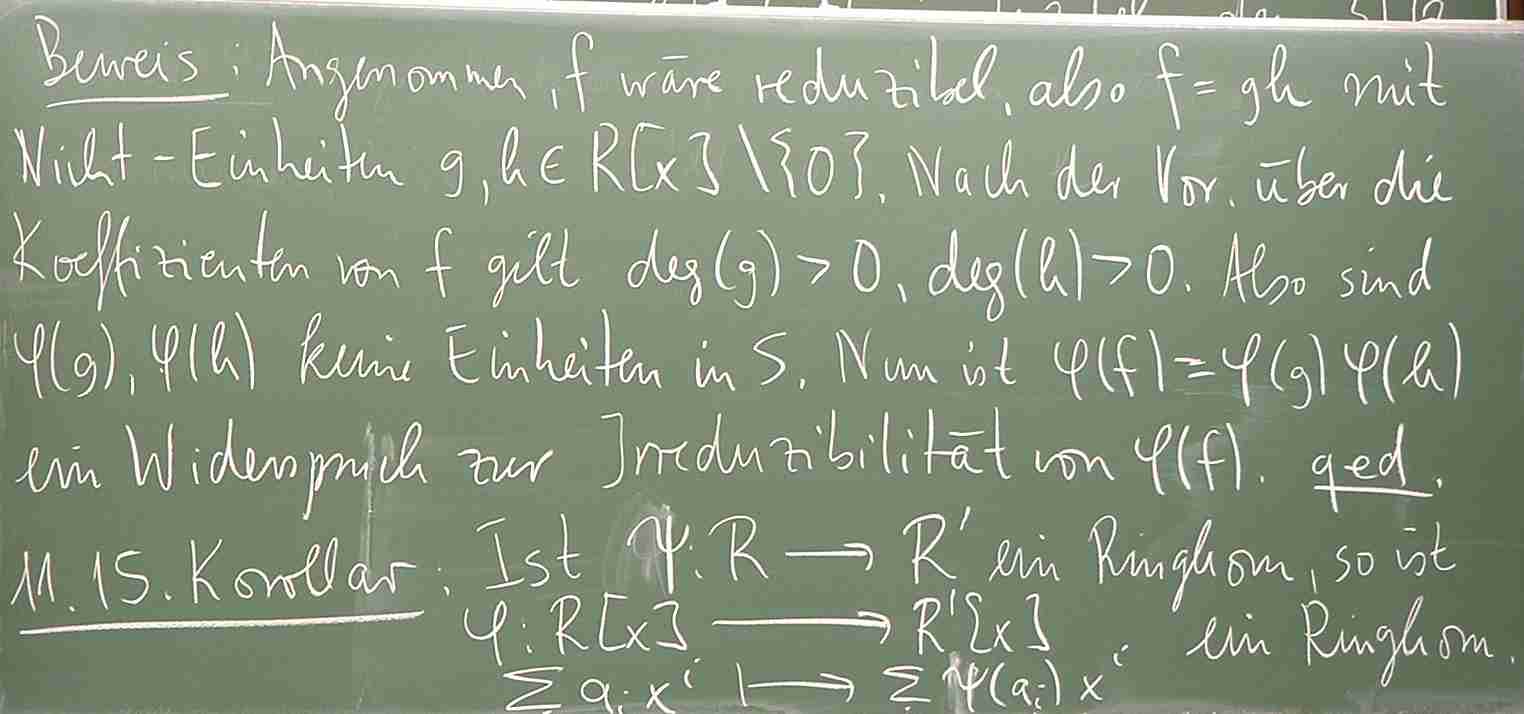 Beweis: Angenommen, f wäre reduzibel, also f = gh mit
Nicht-Einheiten g, h ∈ R[x] \ {0}. Nach der Vor. über die
Koeffizienten von f gilt deg(g) > 0, deg(h) > 0. Also sind
φ(g), φ(h) keine Einheiten in S. Nun ist φ(f) = φ(g) φ(h)
ein Widerspruch zur Irreduzibilität von φ(f). qed.
11.15. Korollar: Ist ψ: R → R' ein Ringhom, so ist
φ: R[x] → R'[x] ein Ringhom.
∑ aᵢ xⁱ ↦ ∑ ψ(aᵢ) xⁱ